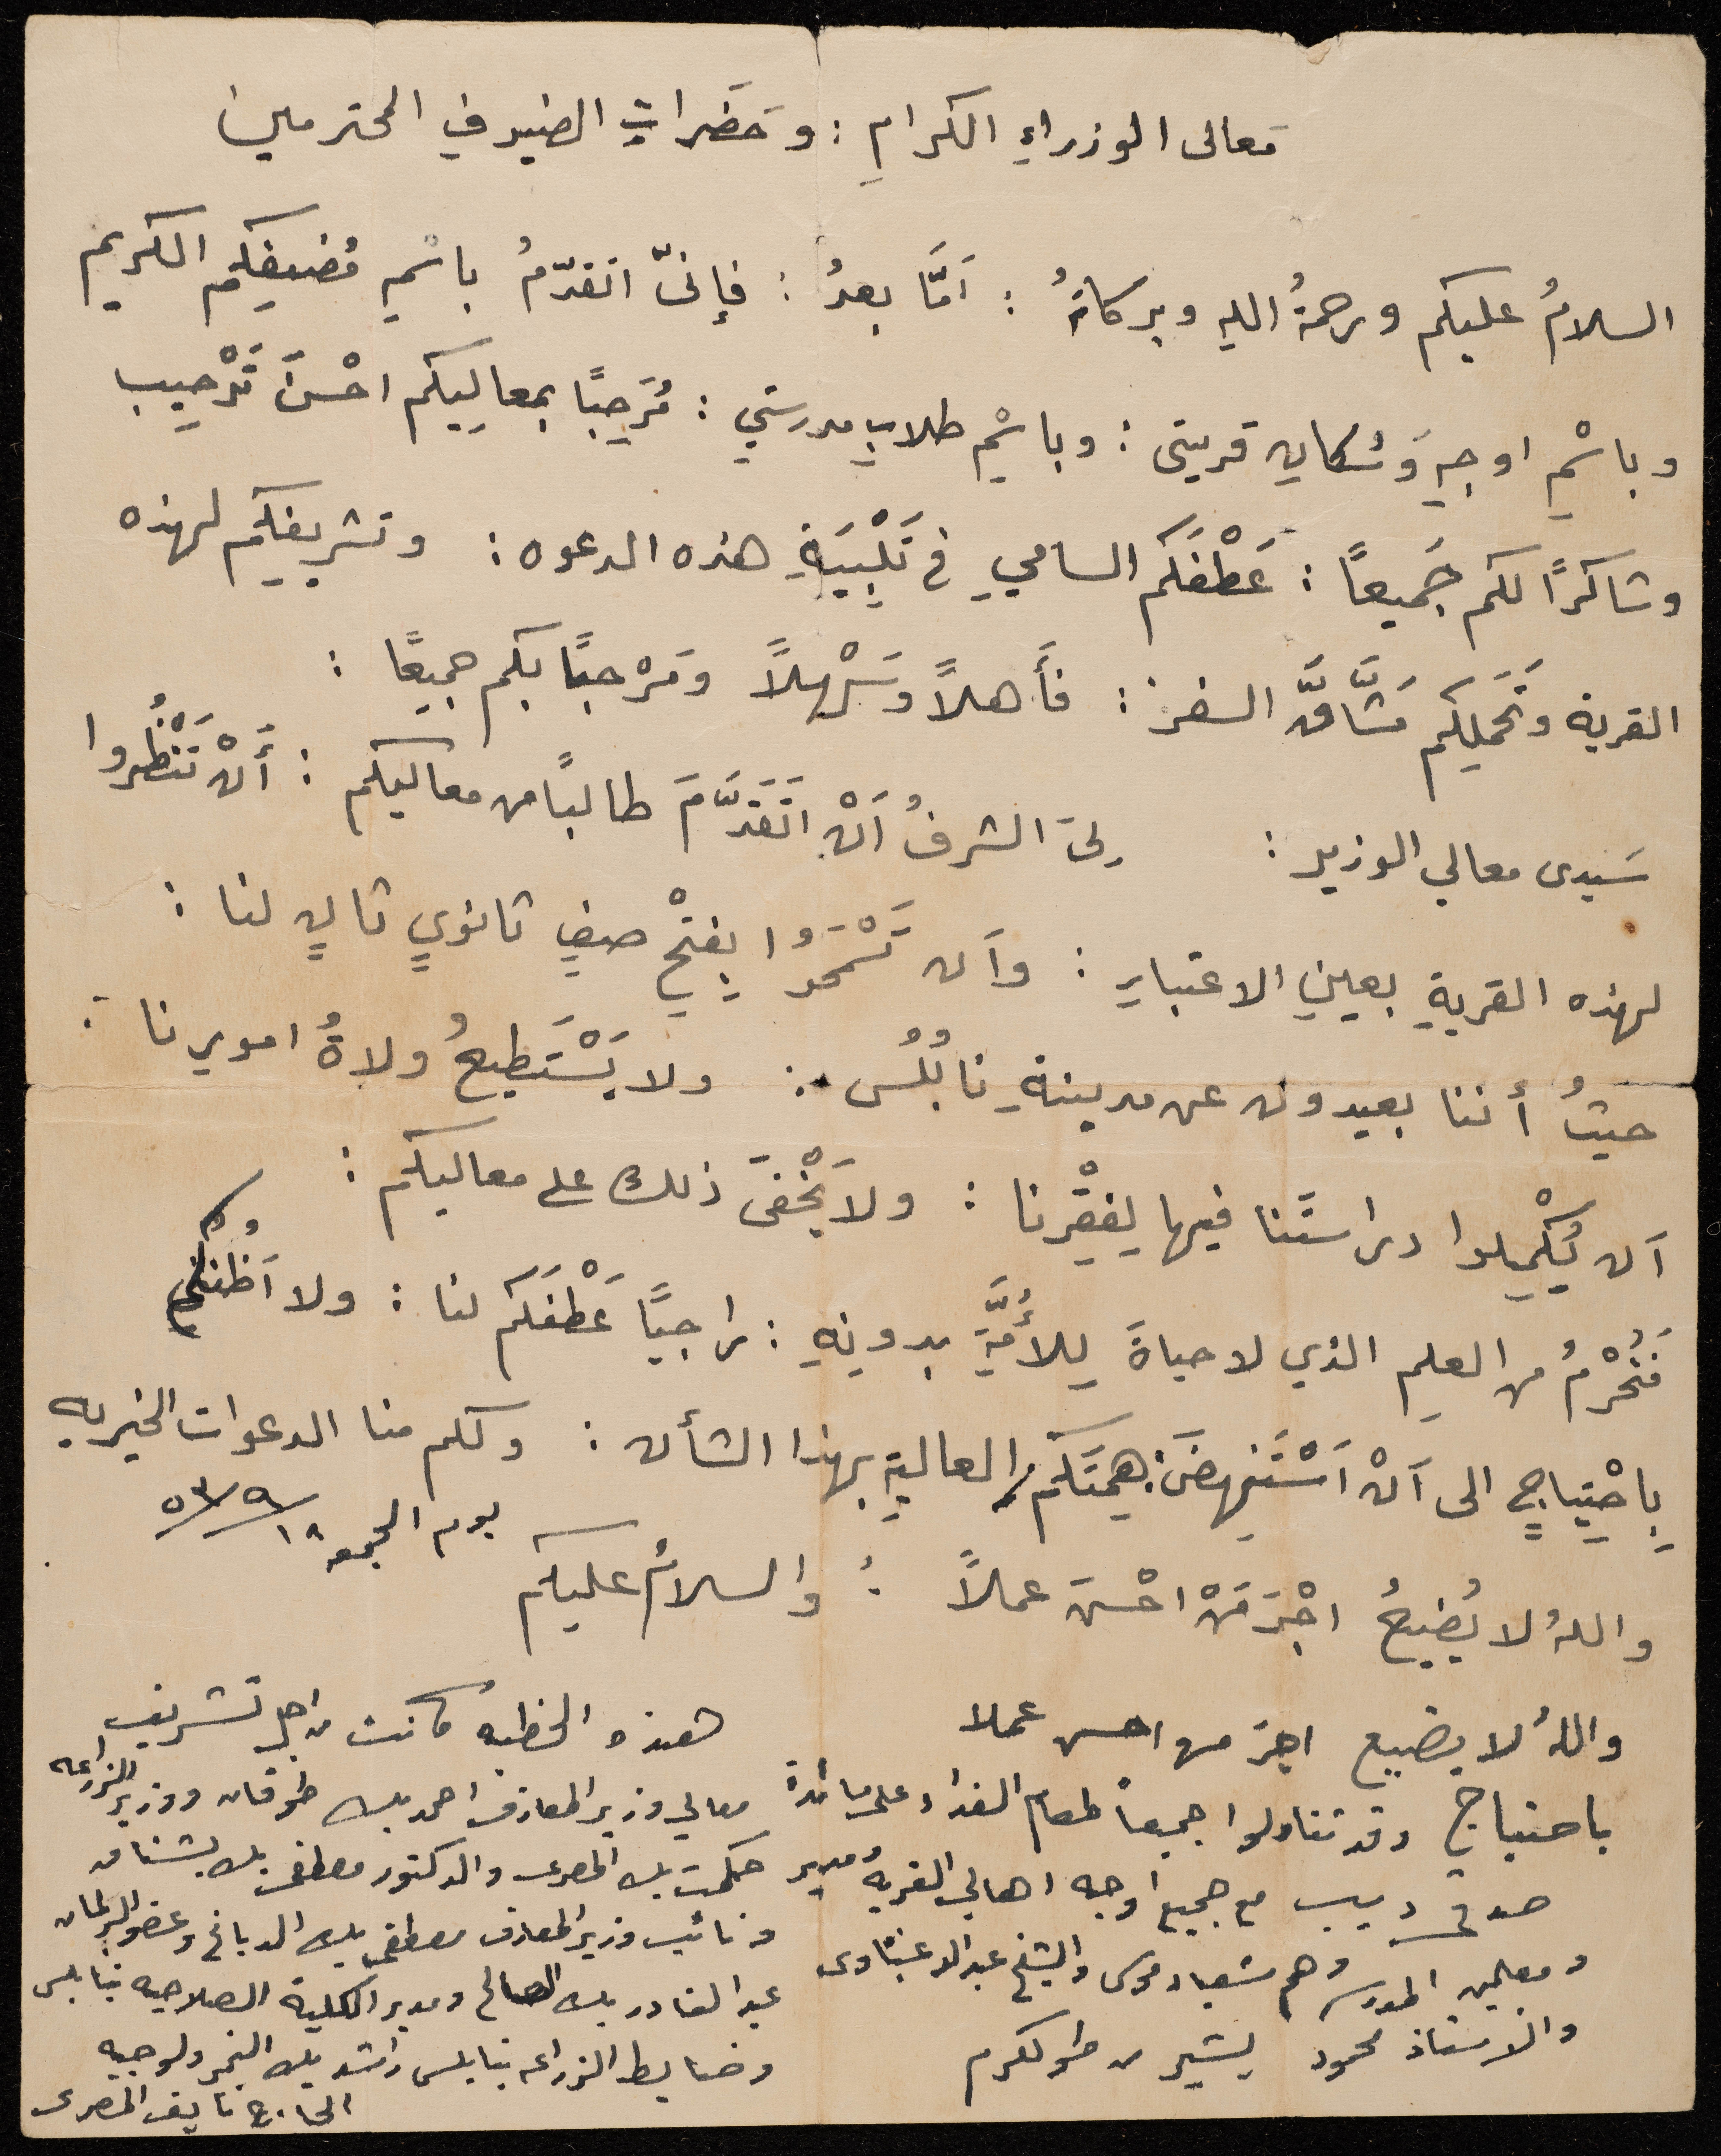 معالى الوزراءِ الكرامِ : وحَضَراتِ الضيوفِ المحترمين
السلامُ عليكم ورحمةُ اللهِ وبركاتهُ : اَمَّا بعدُ : فإنىّ اتقدّمُ باسْمِ مُضيفِكُم الكريم
وباسْمِ اوجهِ وَسُكانِ قريتى : وباسْمِ طلابِ مدرستي : مُرَحِبًا بمعالِيكم احْسنَ تَرْحِيب
وشاكرًا لكم جَميعًا : عَطْفَكم السامي في تَلْبِيَةِ هذه الدعوه : وتشريفِكم لهذه
القرية وتَحَمُلِكم مَشَّاقَّ السفرْ : فأَهلاً وسَهْلاً ومَرْحبًا بكم جميعًا :
سَيدى معالي الوزير : لىَ الشرفُ اَنْ اتَقَدَّمَ طالبًا من معاليكم : أَنْ تَنْظُروا
لهذه القريةِ بعينِ الاعتبارِ : واَن تَسْمَحُوا بِفتْحِ صفٍ ثانويٍ ثانٍ لنا :
حيثُ أننا بعيدون عن مدينةِ نابُلُس : ولا يَسْتَطيعُ ولاةُ امورِنا :
اَن يُكْمِلوا دراستَنا فيها لِفَقْرِنا : ولا يَخْفىَ ذلك على معاليكم :
فَنُحْرَمُ من العلمِ الذي لا حياةَ لِلأُمَّةِ بدونِهِ : راجيًا عَطْفَكم لنا : ولا اَظُنكم
بِاحْتِياجٍ الى اَنْ اَسْتَنهِضَ هِمَتَكُم العاليةِ بهذا الشأن : ولكم منا الدعوات الخيريه
واللهُ لا يُضيعُ اجْرَ مَنْ احْسنَ عملاً : والسلامُ عليكم
يوم الجمعه ١٨/٩/٥٣
واللهُ لا يضيع اجرَ من احسن عملا
باحتياج وقد تناولوا جميعاً طعام الغداء على مائدة
صدقي ديب مع جميع اوجه اهالي القرية ومدير
ومعلمين المدرسه وهم شعباد موسى والشيخ عبدالله غبناوى
والاستاذ محمود بشير من طولكرم
هذه الخطبه كانت من اجل تشريف
معالي وزير المعارف احمد بك طوقان ووزير الزراعه
حكمت بك المصرى والدكتور مصطفى بك بشناق
ونائب وزير المعارف مصطفى بك الدباغ وعضو البرلمان
عبد القادر بك الصالح ومدير الكلية الصلاحيه بنابلس
وضابط الزراعه بنابلس راشد بك النمر ولوجيه
الحاج نايف المصرى